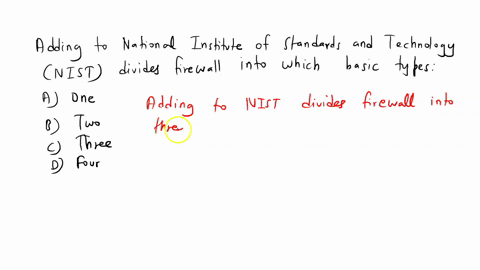 Adding to National Institute of Standards and Technology
(NIST) divides firewall into which basic types:
A) One
B) Two
C) Three
D) Four
Adding to NIST divides firewall into
thre